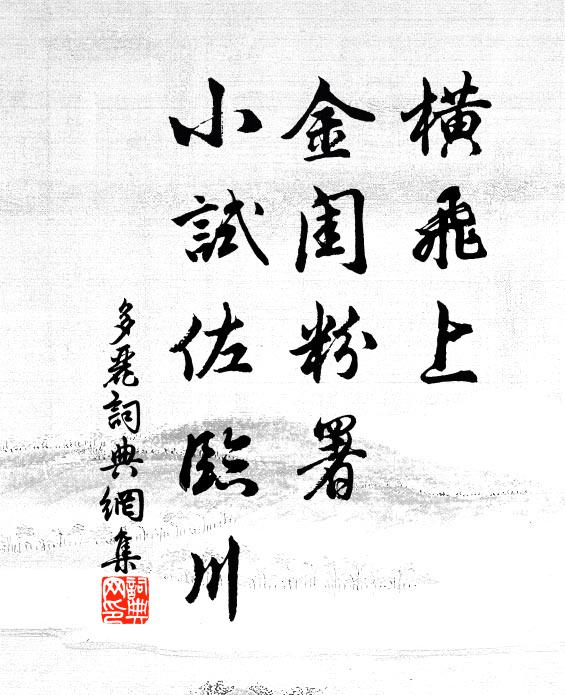 橫飛上
金閨粉署
小試佐臨川
多麗詞典網集
詞典
网印